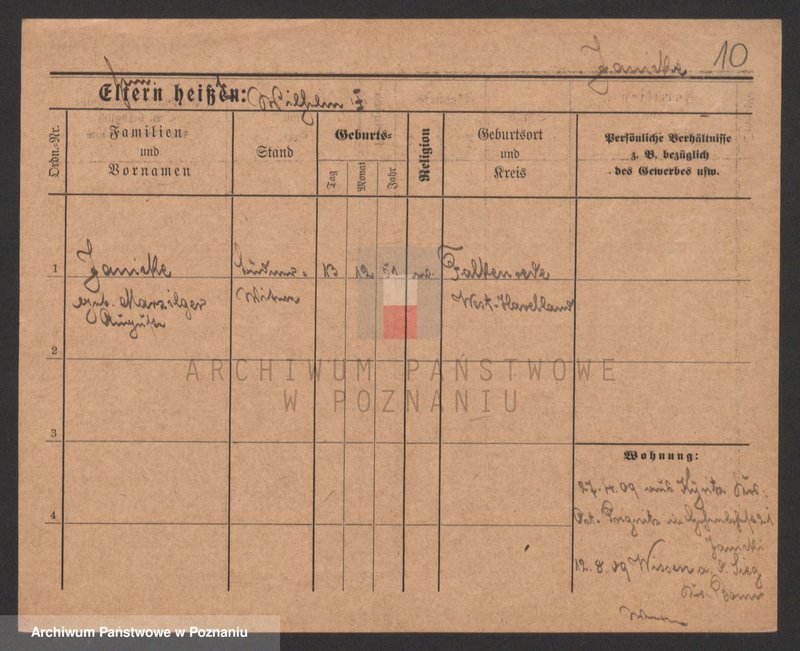 Janicke 10
Eltern heißen: Wilhelm
Ordn.-Nr.
Familien-
und
Vornamen
Stand
Geburts-
Tag
Monat
Jahr
Religion
Geburtsort
und
Kreis
Persönliche Verhältnisse
z. B. bezüglich
des Gewerbes usw.
1 Janicke 13 12 51 Falkenrede
geb. Marzilger Witwe West-Havelland
Auguste
2
ARCHIWUM PAŃSTWOWE
W POZNANIU
3
Wohnung:
27. 4. 09 aus Kyritz Krs.
4
Ost-Prignitz in
Janicki
12. 8. 09 Wissen a. d. Sieg
Krs.
Archiwum Państwowe w Poznaniu